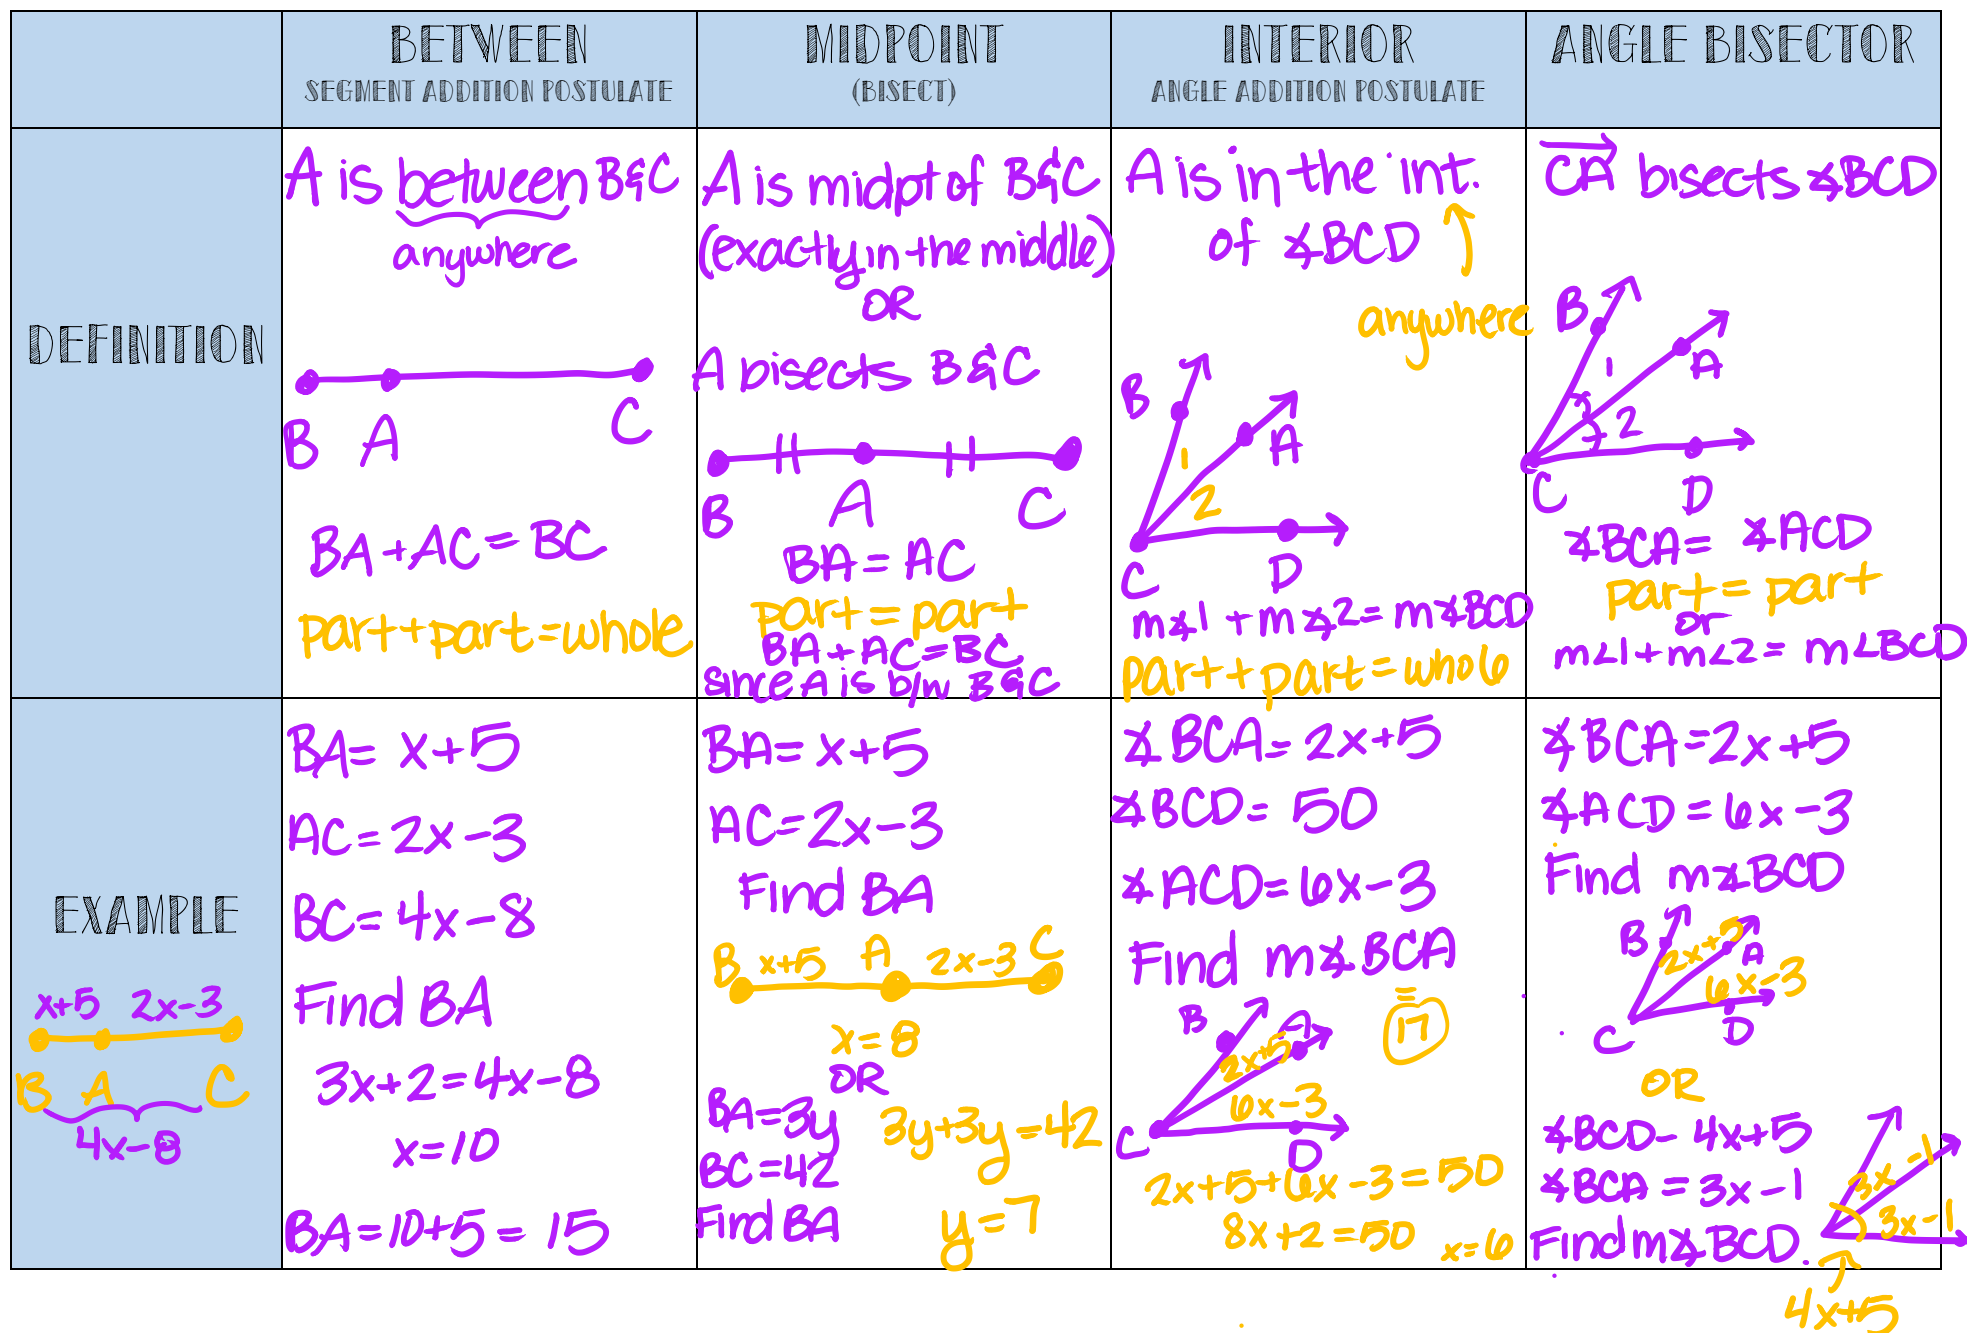 BETWEEN
SEGMENT ADDITION POSTULATE
MIDPOINT
(BISECT)
INTERIOR
ANGLE ADDITION POSTULATE
ANGLE BISECTOR
DEFINITION
A is between B&C
anywhere
B A C
BA+AC=BC
part+part=whole
A is midpt of B&C
(exactly in the middle)
OR
A bisects B&C
B A C
BA=AC
part=part
BA+AC=BC
since A is b/w B&C
A is in the int.
of ∡BCD
anywhere
B
A
1
2
C D
m∡1+m∡2=m∡BCD
part+part=whole
CA bisects ∡BCD
B
A
1
2
C D
∡BCA=∡ACD
part=part
or
m∠1+m∠2=m∠BCD
EXAMPLE
x+5 2x-3
B A C
4x-8
BA=x+5
AC=2x-3
BC=4x-8
Find BA
3x+2=4x-8
x=10
BA=10+5=15
BA=x+5
AC=2x-3
Find BA
B x+5 A 2x-3 C
x=8
OR
BA=3y
BC=42
Find BA
3y+3y=42
y=7
∡BCA=2x+5
∡BCD=50
∡ACD=6x-3
Find m∡BCA
=
17
B A
2x+5
6x-3
C D
2x+5+6x-3=50
8x+2=50
x=6
∡BCA=2x+5
∡ACD=6x-3
Find m∡BCD
B 2x+5 A
6x-3
C D
OR
∡BCD-4x+5
∡BCA=3x-1
Find m∡BCD.
3x-1
3x-1
4x+5